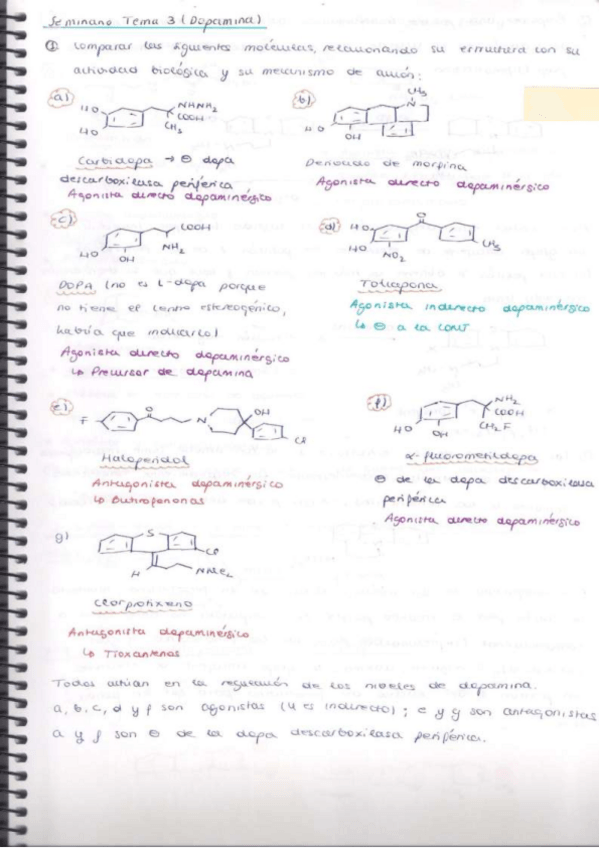 Seminario Tema 3 (Dopamina)
① Comparar las siguientes moléculas, relacionando su estructura con su
actividad biológica y su mecanismo de acción:
a) HO HO NHNH₂ COOH CH₃
b) CH₃ N HO OH
Carbidopa → ⊖ dopa
descarboxilasa periférica
Agonista directo dopaminérgico
Derivado de morfina
Agonista directo dopaminérgico
c) COOH NH₂ HO OH
d) HO HO NO₂ O CH₃
DOPA (no es L-dopa porque
no tiene el centro estereogénico,
habría que indicarlo)
Agonista directo dopaminérgico
↳ Precursor de dopamina
Tolcapona
Agonista indirecto dopaminérgico
↳ ⊖ a la COMT
e) F O N OH Cl
f) NH₂ COOH CH₂F HO OH
Haloperidol
Antagonista dopaminérgico
↳ Butirofenonas
α-fluorometildopa
⊖ de la dopa descarboxilasa
periférica
Agonista directo dopaminérgico
g) S Cl H NMe₂
Clorprotixeno
Antagonista dopaminérgico
↳ Tioxantenos
Todos actúan en la regulación de los niveles de dopamina.
a, b, c, d y f son agonistas (4 es indirecto); e y g son antagonistas
a y f son ⊖ de la dopa descarboxilasa periférica.